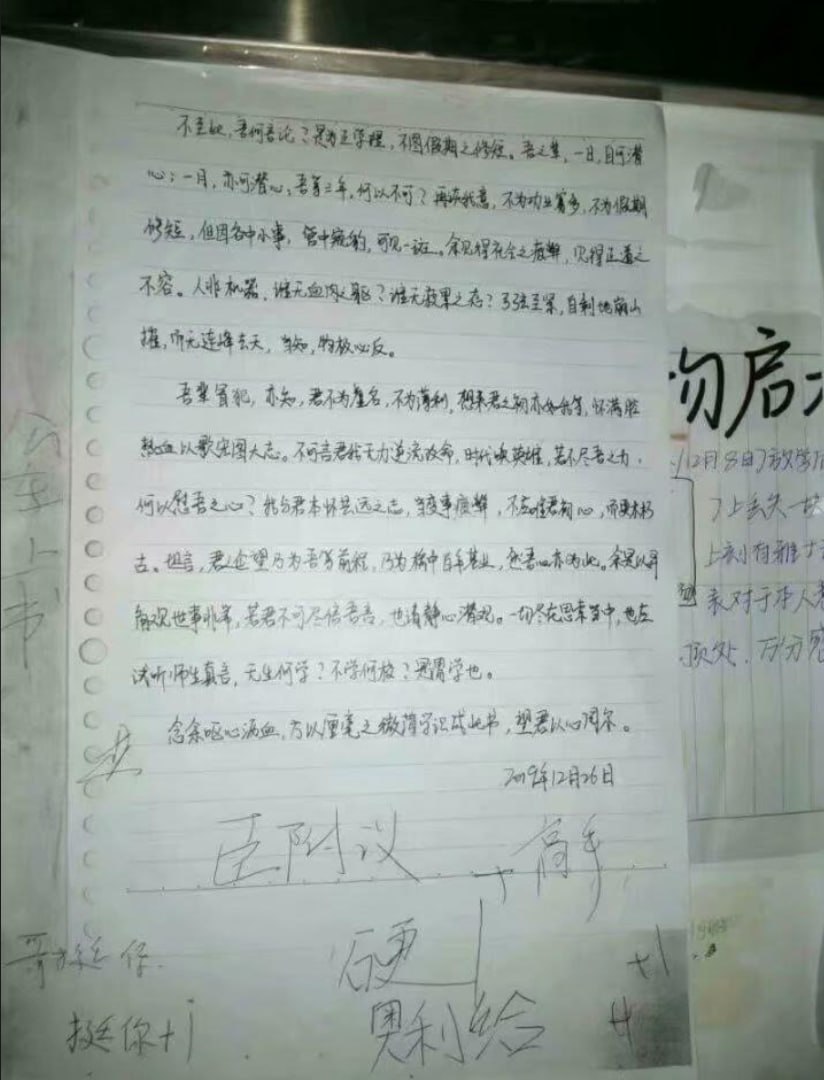 不至此，吾何言论？是为正学理，不图假期之修短。吾之辈，一日，自可潜
心；一月，亦可潜心，吾等三年，何以不可？再谈我意，不为功业寡多，不为假期
修短，但因各中小事，管中窥豹，可见一斑。余见得社会之疲弊，见得正道之
不容。人非机器，谁无血肉之躯？谁无哀果之态？弓弦至紧，自利地崩山
摧，而无连峰去天，当知，物极必反。
吾辈冒犯，亦知，君不为虚名，不为薄利，想来君之初亦如我等，怀满腔
热血以歌宏图大志。不可言君我无力逆流改命，时代唤英雄，若不尽吾之力，
何以慰吾之心？我与君本怀共远之志，当
古。坦言，君之企望乃为吾等前程，乃为榆中百年基业，然吾心亦为此。余是以
角观世事非常，若君不可尽信吾言，也请静心潜观。一切尽在思索当中，也在
试听师生真言，无生何学？不学何校？是谓学也。
念余呕心沥血，方以厘毫之微薄学识成此书，望君以心阅尔。
2019年12月26日
臣附议
高手
硬
奥利给
+1
哥挺你
挺你+1
公车上书
勿启
12月8日
了上丢失一块
对于本人
顶处，万分感